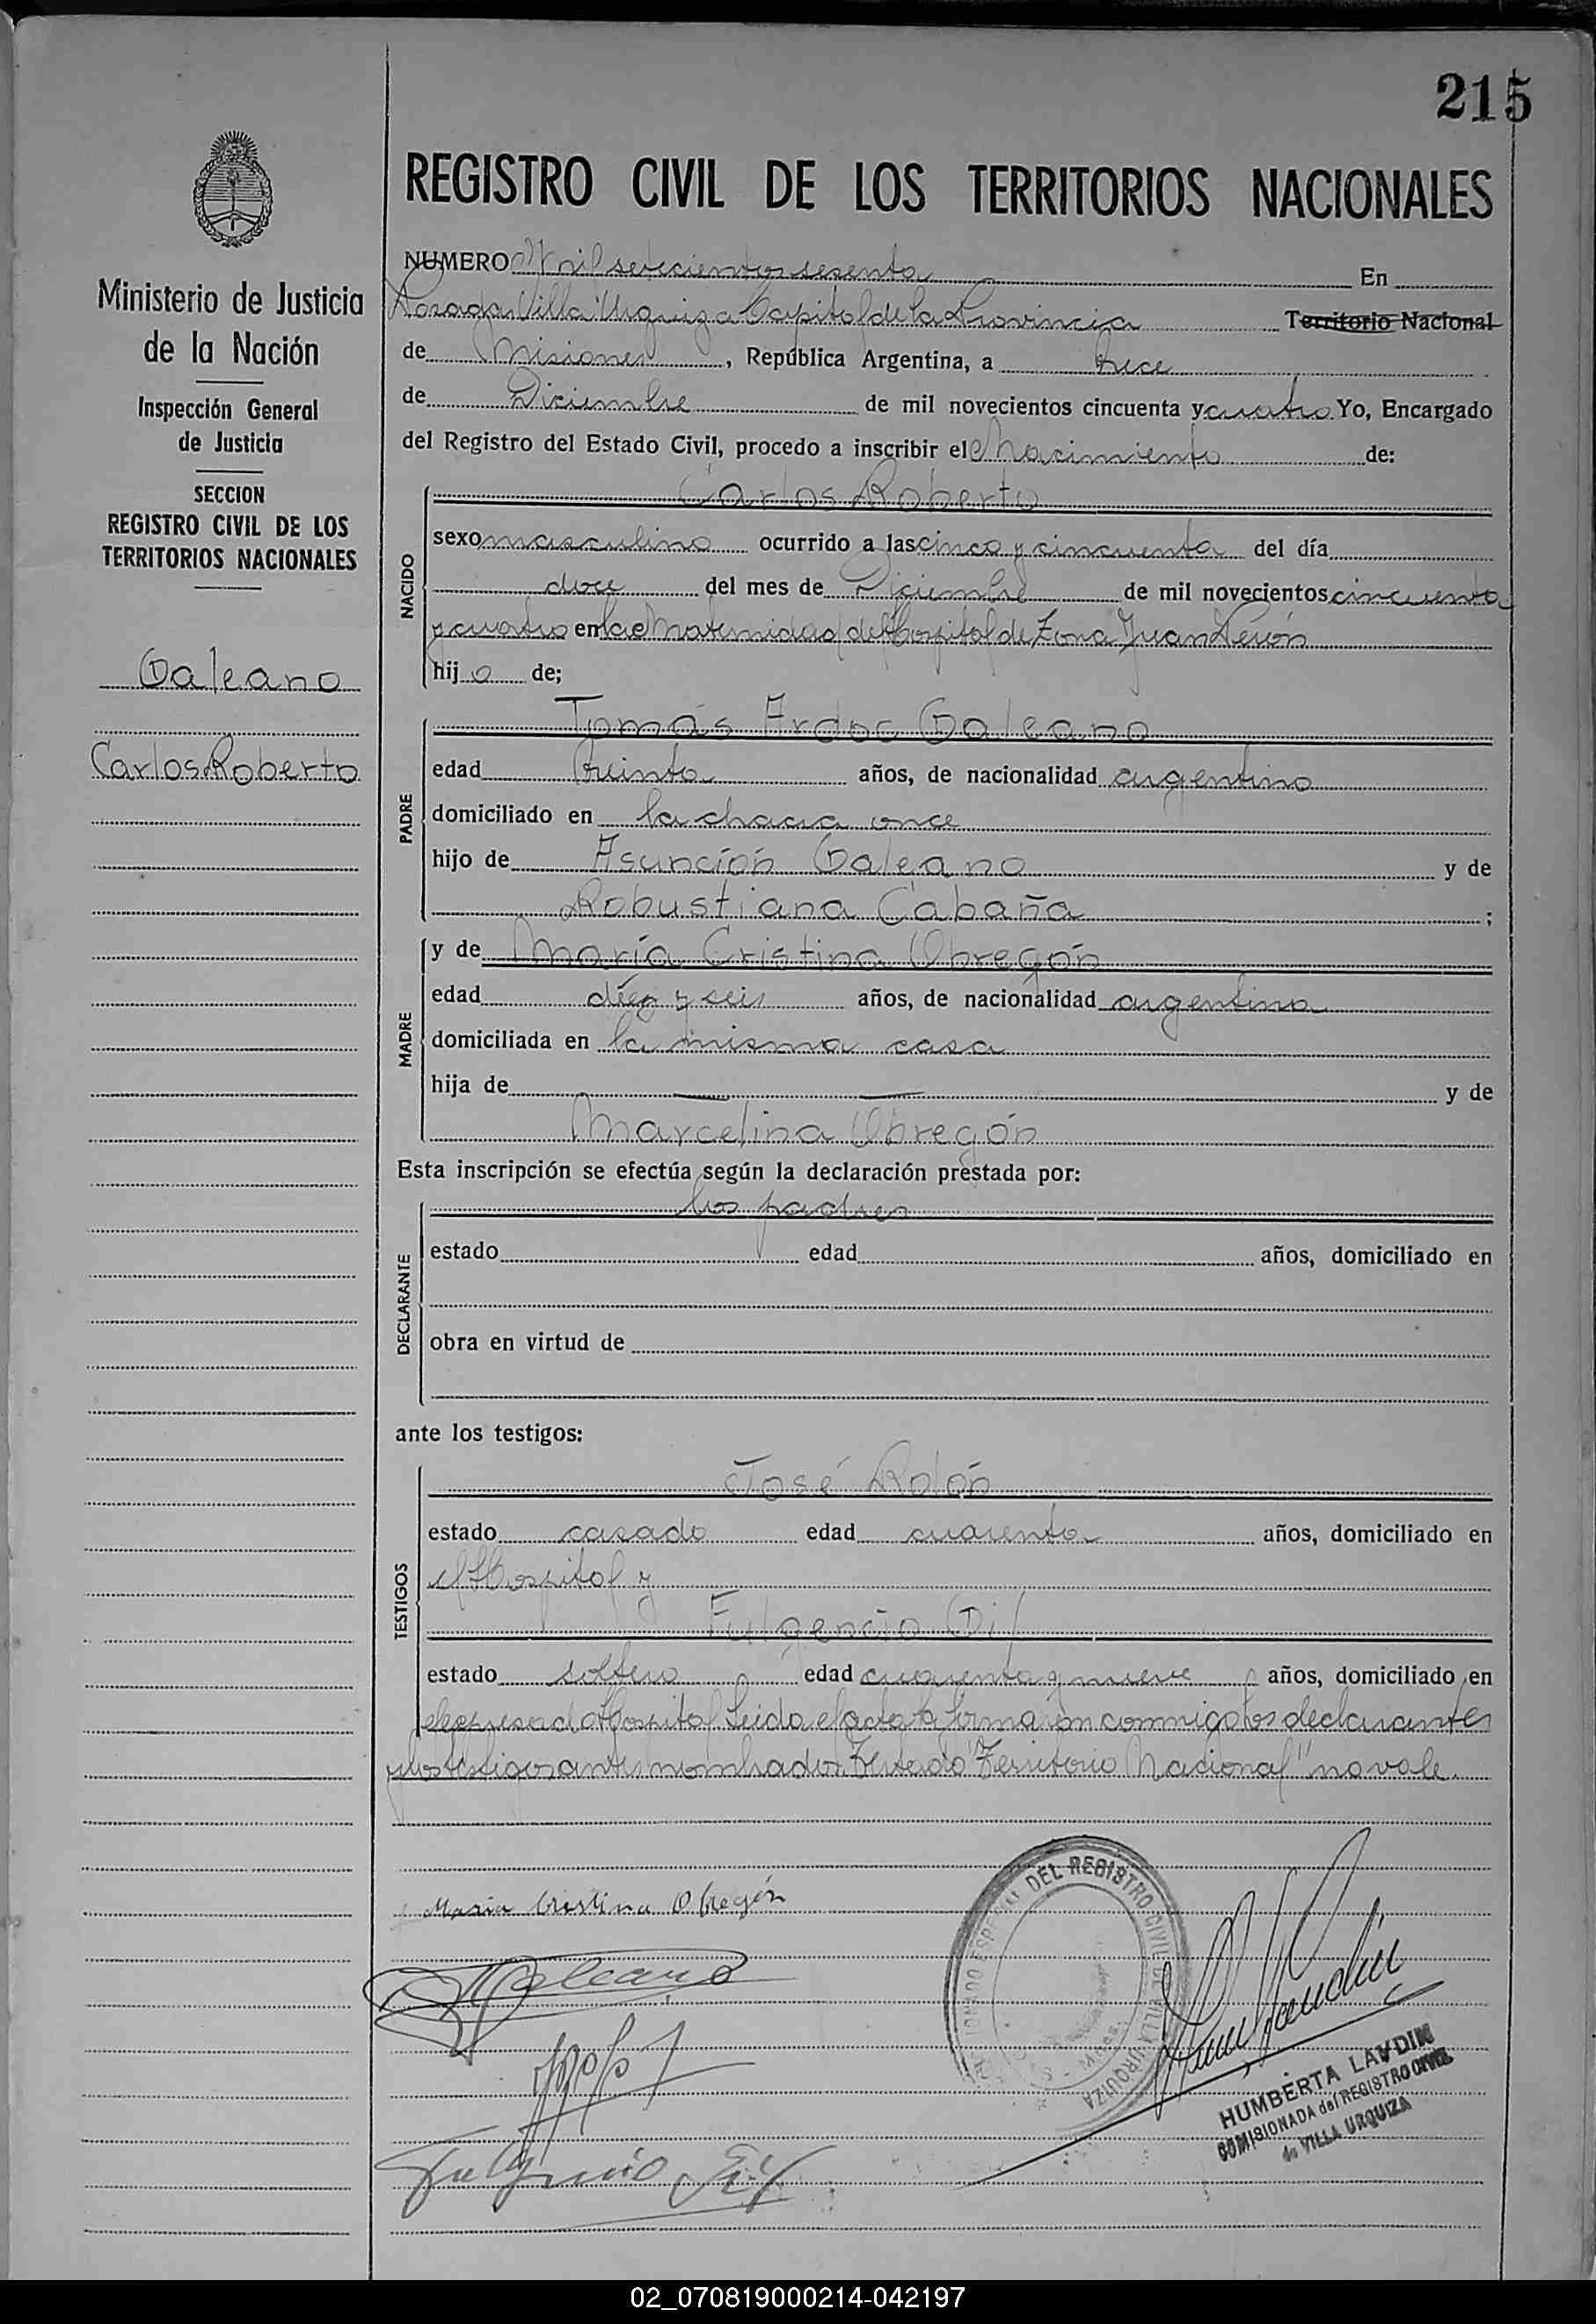 215
REGISTRO CIVIL DE LOS TERRITORIOS NACIONALES
Ministerio de Justicia
de la Nación
Inspección General
de Justicia
SECCION
REGISTRO CIVIL DE LOS
TERRITORIOS NACIONALES
Galeano
Carlos Roberto
NUMERO Mil setecientos sesenta En
Posadas Villa Urquiza Capital de la Provincia Territorio Nacional
de Misiones, República Argentina, a trece
de Diciembre de mil novecientos cincuenta y cuatro Yo, Encargado
del Registro del Estado Civil, procedo a inscribir el Nacimiento de:
NACIDO
Carlos Roberto
sexo masculino ocurrido a las cinco y cincuenta del día
doce del mes de Diciembre de mil novecientos cincuenta
y cuatro en la Maternidad del Hospital de Zona Juan Perón
hijo de;
PADRE
Tomás Ardoc Galeano
edad treinta años, de nacionalidad argentino
domiciliado en la chacra once
hijo de Asunción Galeano y de
Robustiana Cabaña ;
MADRE
y de María Cristina Obregón
edad diez y seis años, de nacionalidad argentina
domiciliada en la misma casa
hija de — — y de
Marcelina Obregón
Esta inscripción se efectúa según la declaración prestada por:
DECLARANTE
los padres
estado edad años, domiciliado en
obra en virtud de
ante los testigos:
TESTIGOS
José Rolón
estado casado edad cuarenta años, domiciliado en
el Hospital y
Fulgencio Gil
estado soltero edad cuarenta y nueve años, domiciliado en
el expresado Hospital Leida el acta la firmaron conmigo los declarantes
y los testigos antes nombrados. Testado "Territorio Nacional" no vale.
Maria Cristina Obregón
Galeano
Fulgencio Gil
DEL REGISTRO CIVIL DE VILLA URQUIZA
HUMBERTA LAVDIN
COMISIONADA del REGISTRO CIVIL
de VILLA URQUIZA
02_070819000214-042197